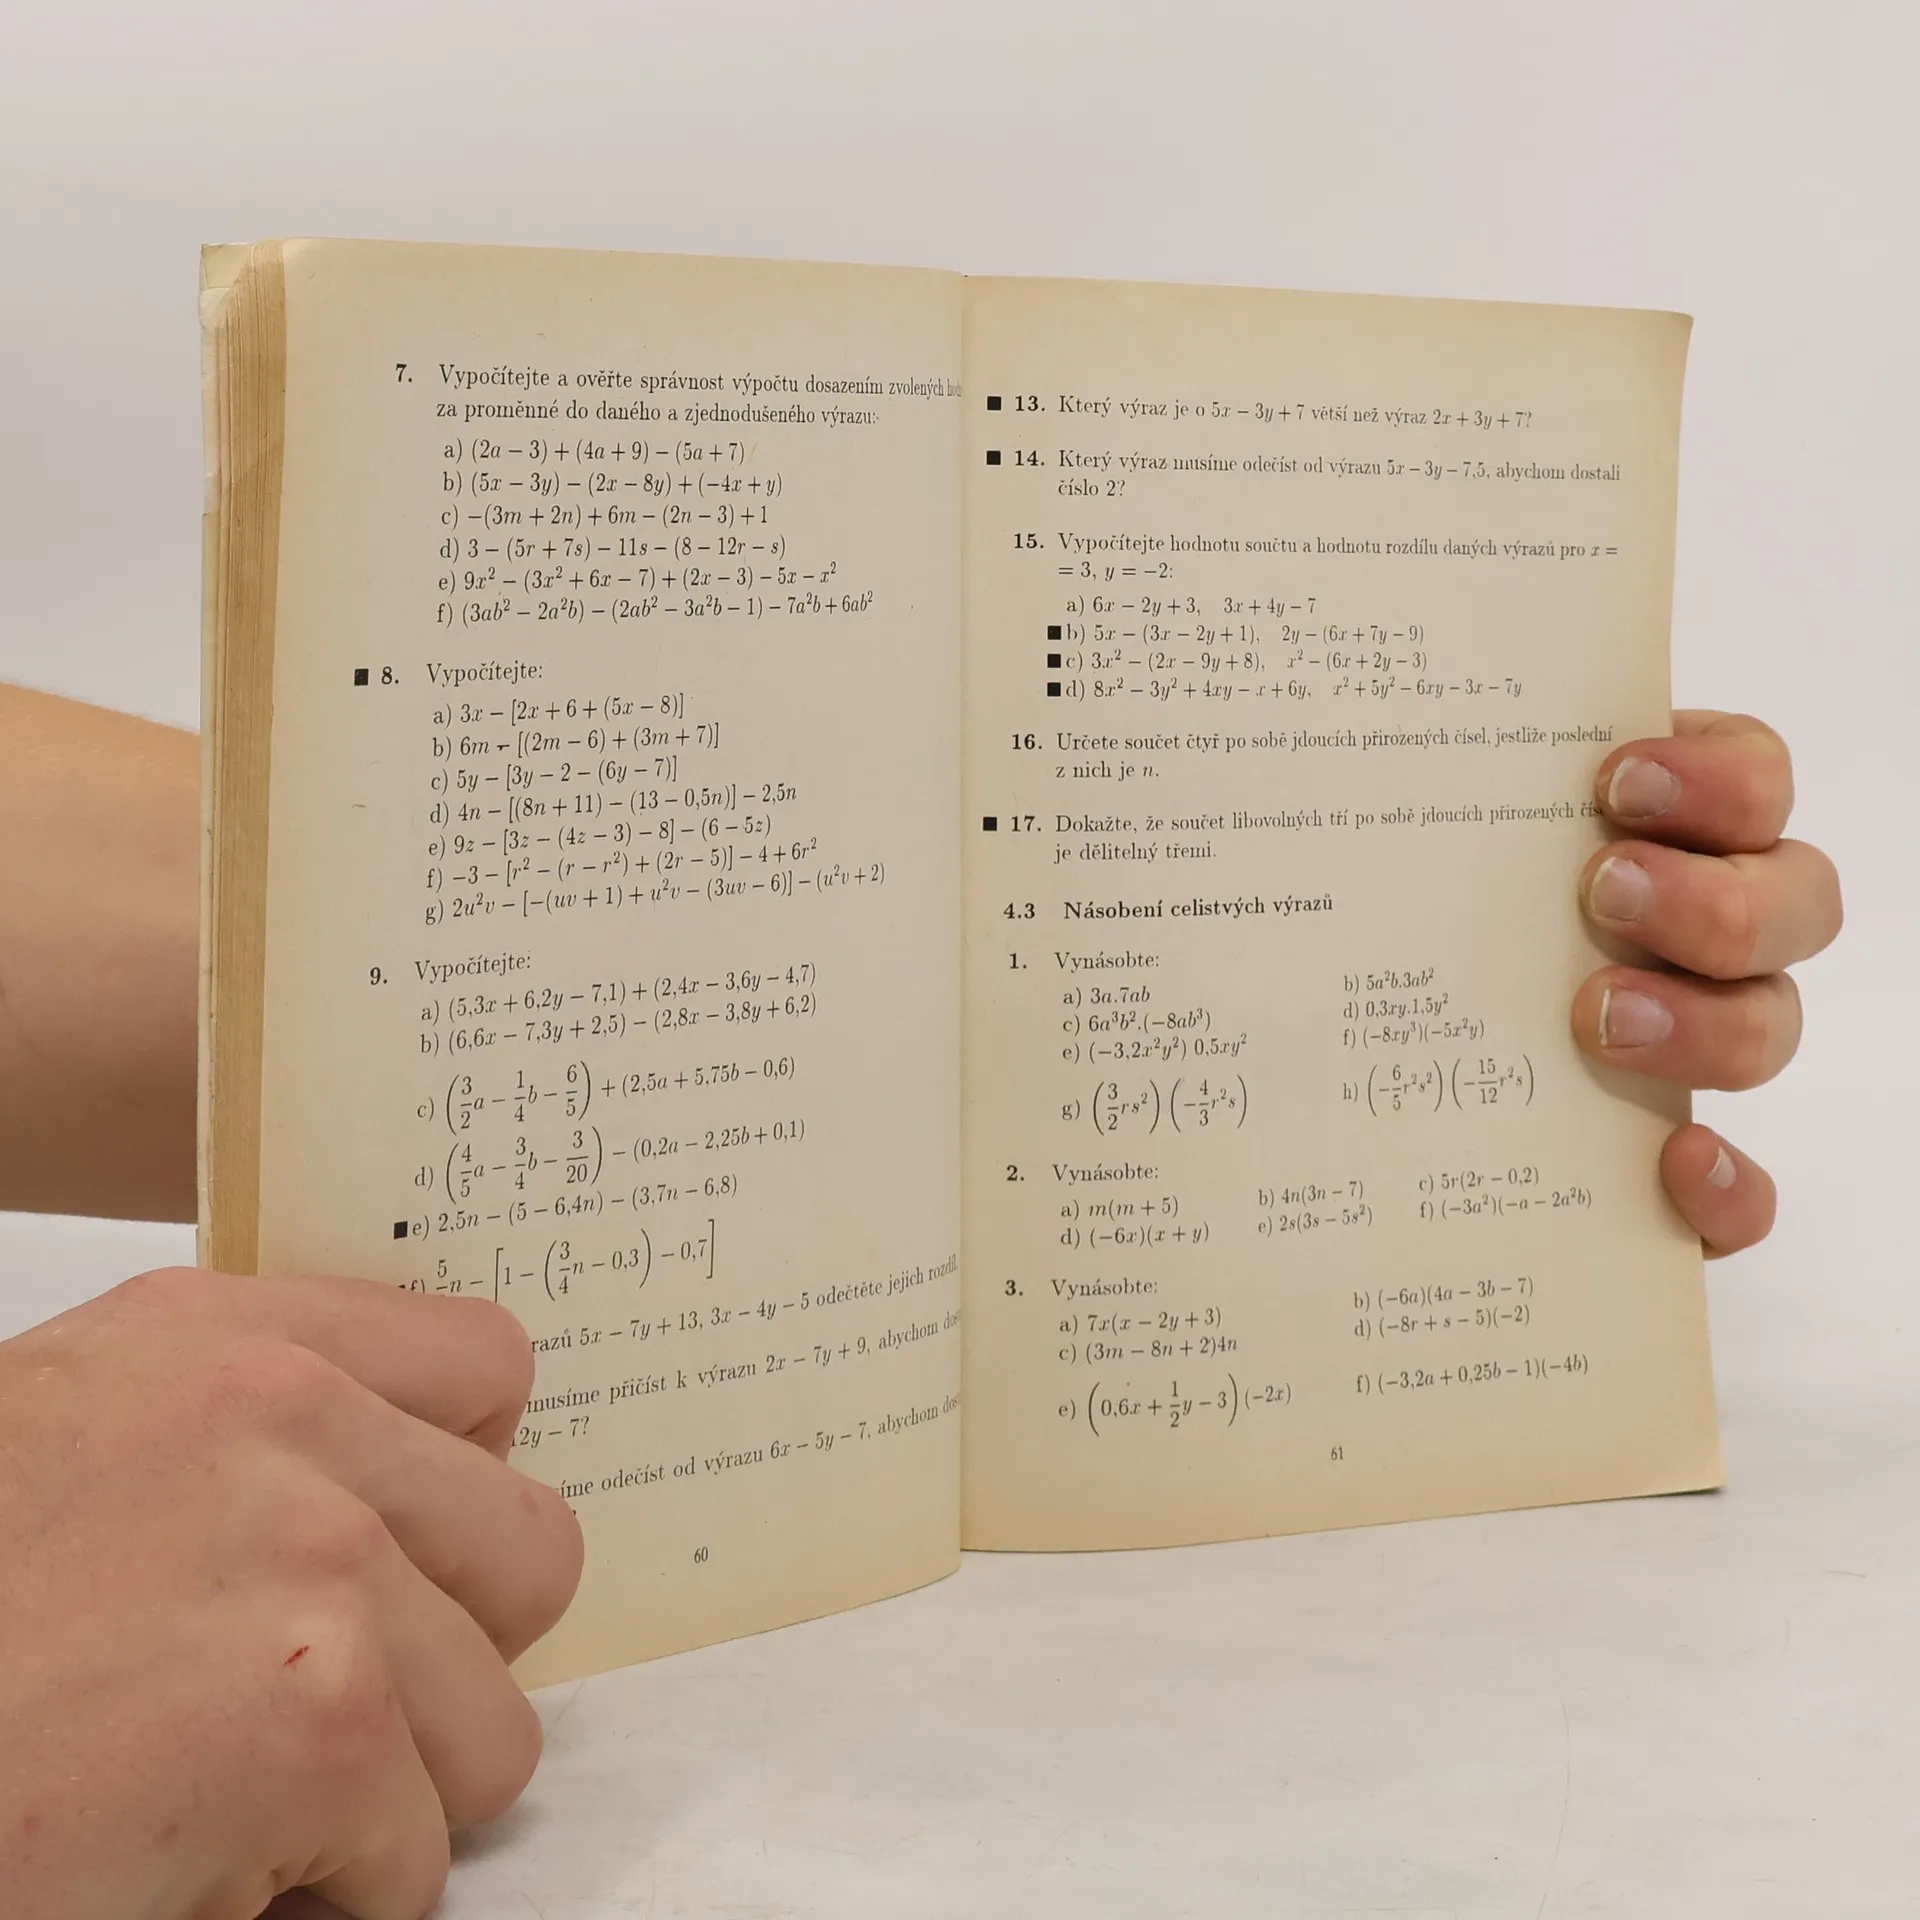 7. Vypočítejte a ověřte správnost výpočtu dosazením zvolených
za proměnné do daného a zjednodušeného výrazu:
a) (2a − 3) + (4a + 9) − (5a + 7)
b) (5x − 3y) − (2x − 8y) + (−4x + y)
c) −(3m + 2n) + 6m − (2n − 3) + 1
d) 3 − (5r + 7s) − 11s − (8 − 12r − s)
e) 9x² − (3x² + 6x − 7) + (2x − 3) − 5x − x²
f) (3ab² − 2a²b) − (2ab² − 3a²b − 1) − 7a²b + 6ab²
■ 8. Vypočítejte:
a) 3x − [2x + 6 + (5x − 8)]
b) 6m − [(2m − 6) + (3m + 7)]
c) 5y − [3y − 2 − (6y − 7)]
d) 4n − [(8n + 11) − (13 − 0,5n)] − 2,5n
e) 9z − [3z − (4z − 3) − 8] − (6 − 5z)
f) −3 − [r² − (r − r²) + (2r − 5)] − 4 + 6r²
g) 2u²v − [−(uv + 1) + u²v − (3uv − 6)] − (u²v + 2)
9. Vypočítejte:
a) (5,3x + 6,2y − 7,1) + (2,4x − 3,6y − 4,7)
b) (6,6x − 7,3y + 2,5) − (2,8x − 3,8y + 6,2)
c) (3/2 a − 1/4 b − 6/5) + (2,5a + 5,75b − 0,6)
d) (4/5 a − 3/4 b − 3/20) − (0,2a − 2,25b + 0,1)
■ e) 2,5n − (5 − 6,4n) − (3,7n − 6,8)
f) 5/ n − [1 − (3/4 n − 0,3) − 0,7]
razů 5x − 7y + 13, 3x − 4y − 5 odečtěte jejich rozdíl
musíme přičíst k výrazu 2x − 7y + 9, abychom
2y − 7?
odečíst od výrazu 6x − 5y − 7, abychom
60
■ 13. Který výraz je o 5x − 3y + 7 větší než výraz 2x + 3y + 7?
■ 14. Který výraz musíme odečíst od výrazu 5x − 3y − 7,5, abychom dostali
číslo 2?
15. Vypočítejte hodnotu součtu a hodnotu rozdílu daných výrazů pro x =
= 3, y = −2:
a) 6x − 2y + 3, 3x + 4y − 7
■ b) 5x − (3x − 2y + 1), 2y − (6x + 7y − 9)
■ c) 3x² − (2x − 9y + 8), x² − (6x + 2y − 3)
■ d) 8x² − 3y² + 4xy − x + 6y, x² + 5y² − 6xy − 3x − 7y
16. Určete součet čtyř po sobě jdoucích přirozených čísel, jestliže poslední
z nich je n.
■ 17. Dokažte, že součet libovolných tří po sobě jdoucích přirozených
je dělitelný třemi.
4.3 Násobení celistvých výrazů
1. Vynásobte:
a) 3a.7ab b) 5a²b.3ab²
c) 6a³b².(−8ab³) d) 0,3xy.1,5y²
e) (−3,2x²y²) 0,5xy² f) (−8xy³)(−5x²y)
g) (3/2 rs²)(−4/3 r²s) h) (−6/5 r²s²)(−15/12 r²s)
2. Vynásobte:
a) m(m + 5) b) 4n(3n − 7) c) 5r(2r − 0,2)
d) (−6x)(x + y) e) 2s(3s − 5s²) f) (−3a²)(−a − 2a²b)
3. Vynásobte:
a) 7x(x − 2y + 3) b) (−6a)(4a − 3b − 7)
c) (3m − 8n + 2)4n d) (−8r + s − 5)(−2)
e) (0,6x + 1/2 y − 3)(−2x) f) (−3,2a + 0,25b − 1)(−4b)
61